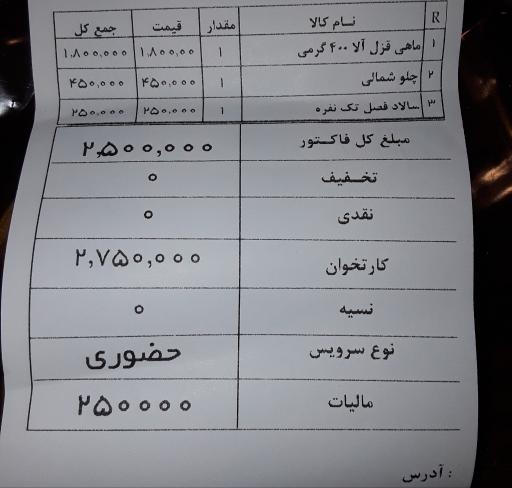 R نام کالا مقدار قیمت جمع کل
۱ ماهی قزل آلا ۴۰۰ گرمی ۱ ۱,۸۰۰,۰۰ ۱,۸۰۰,۰۰۰
۲ چلو شمالی ۱ ۴۵۰,۰۰۰ ۴۵۰,۰۰۰
۳ سالاد فصل تک نفره ۱ ۲۵۰,۰۰۰ ۲۵۰,۰۰۰
مبلغ کل فاکتور ۲,۵۰۰,۰۰۰
تخفیف ۰
نقدی ۰
کارتخوان ۲,۷۵۰,۰۰۰
نسیه ۰
نوع سرویس حضوری
مالیات ۲۵۰۰۰۰
آدرس :